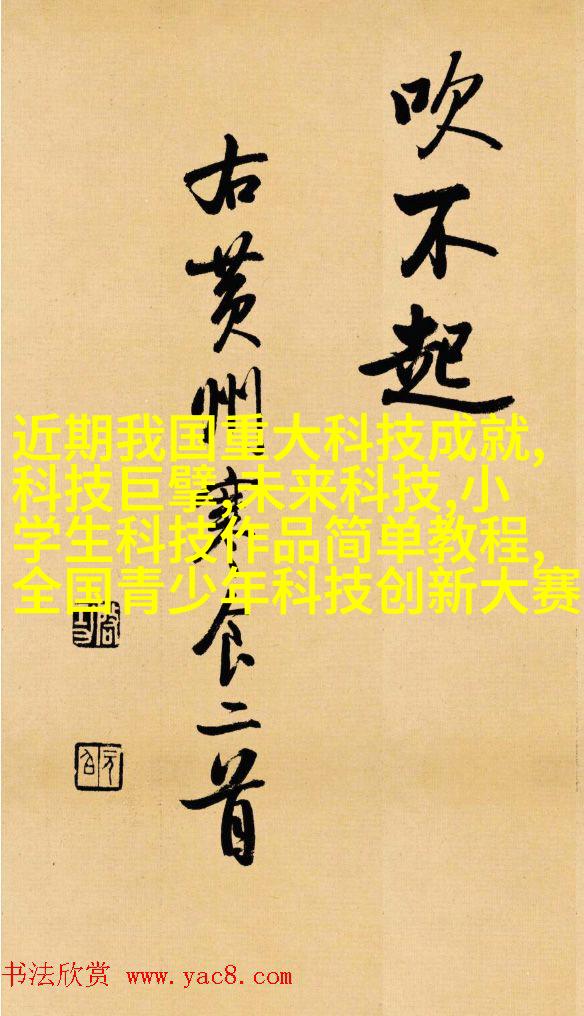 吹不起
右黄州寒食二首
近期我国重大科技成就,
科技巨擘,未来科技,小
学生科技作品简单教程,
全国青少年科技创新大赛
书法欣赏 www.yac8.com